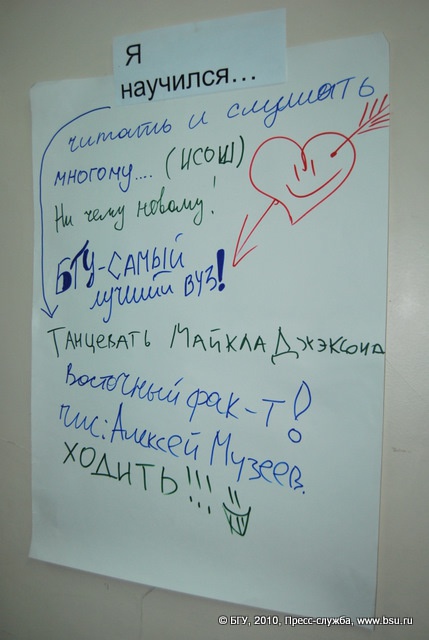 Я
научился...
читать и слушать
многому.... (ИСОШ)
Ни чему новому!
БГУ-САМЫЙ
лучший ВУЗ!
ТАНЦЕВАТЬ МАЙКЛА ДЖЭКСОНА
Восточный фак-т!
Алексей Музеев.
ХОДИТЬ!!!
© БГУ, 2010, Пресс-служба, www.bsu.ru